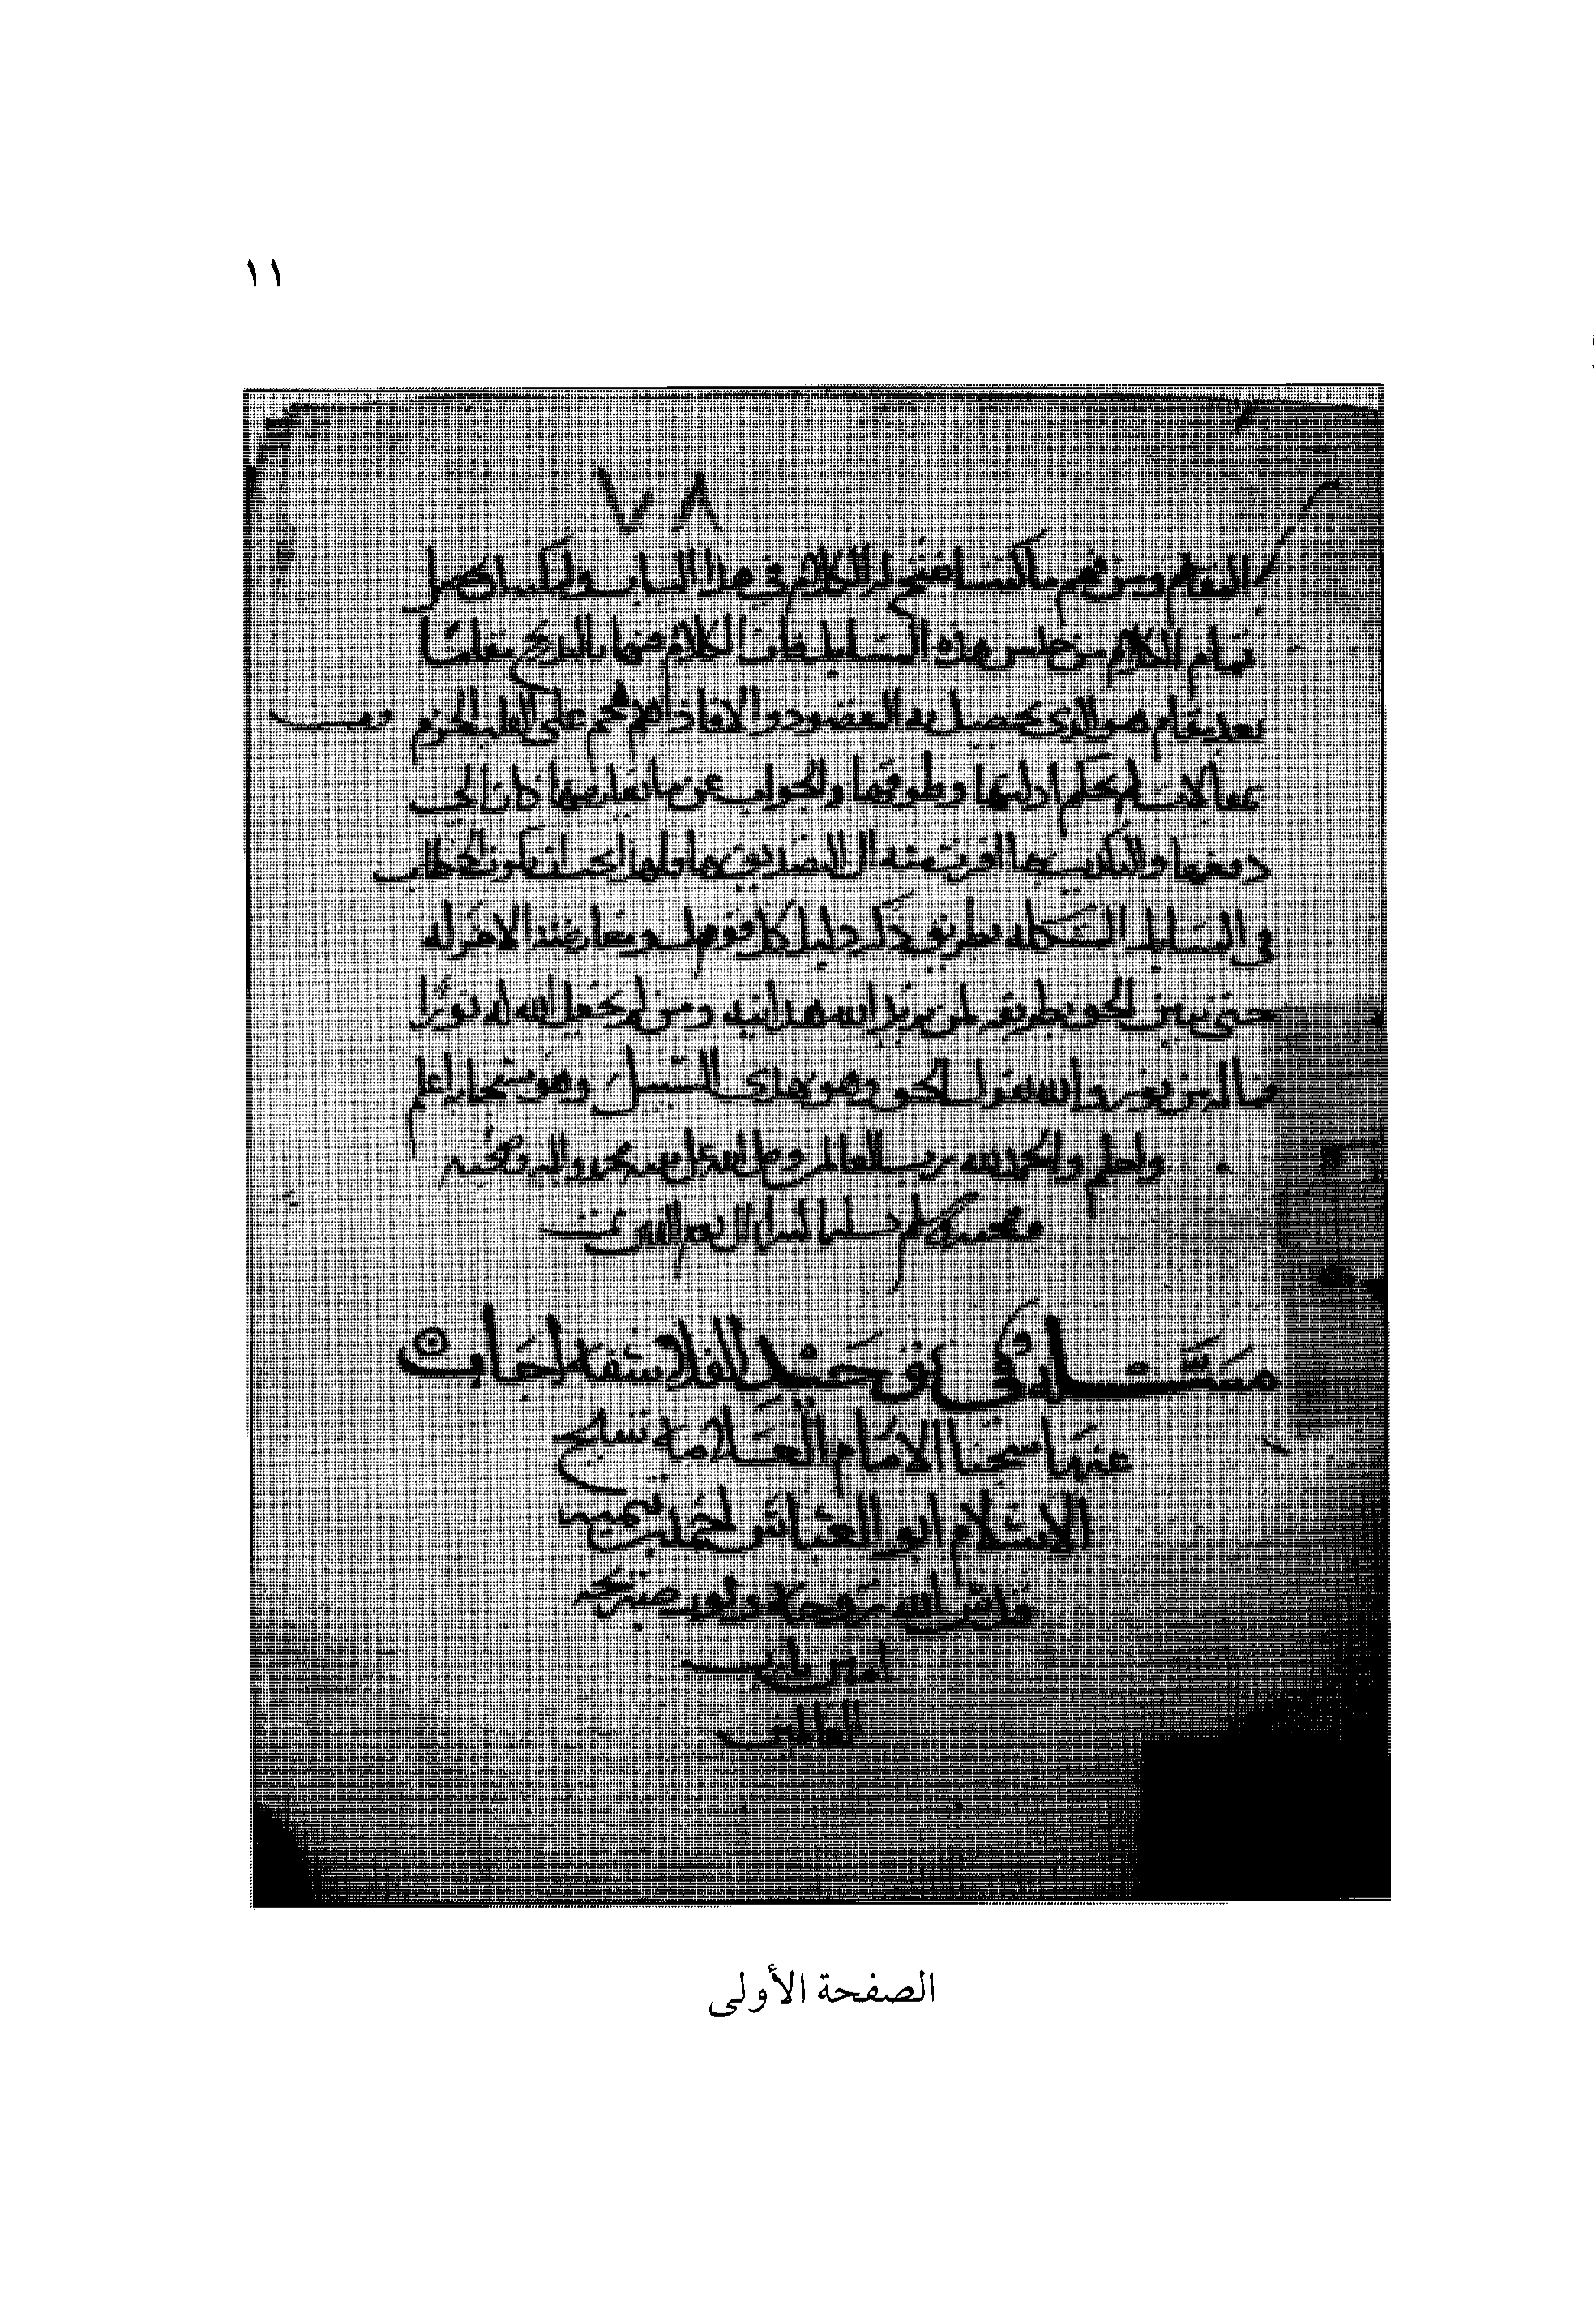 ١١
٧٨
المقام ومن فهم ما كتبنا انفتح له الكلام في هذا الباب وامكنه ان يحصل
تمام الكلام من جنس هذه المسايل فان الكلام فيها بالتدريج مقاما
بعد مقام هو الذي يحصل به المقصود والا فاذا هجم على القلب الجزم
بمقالات لم يحكم ادلتها وطرقها والجواب عن ما يعارضها كان الي
دفعها والتكذيب بها اقرب منه الى التصديق بها فلهذا يجب ان يكون الخطاب
في المسايل المشكله بطريق ذكر دليل كل قول ومعارضه الاخر له
حتى يتبين الحق بطريقه لمن يريد الله هدايته ومن لم يجعل الله له نورا
فما له من نور والله يقول الحق وهو يهدي السبيل وهو سبحانه اعلم
واحلم والحمد لله رب العالمين وصلى الله على محمد واله وصحبه
وسلم تسليما الى يوم الدين
مسئلة في توحيد الفلاسفه اجاب
عنها شيخنا الامام العلامه شيخ
الاسلام ابو العباس احمد بن تيميه
قدس الله روحه ونور ضريحه
امين يا رب
العالمين
الصفحة الأولى